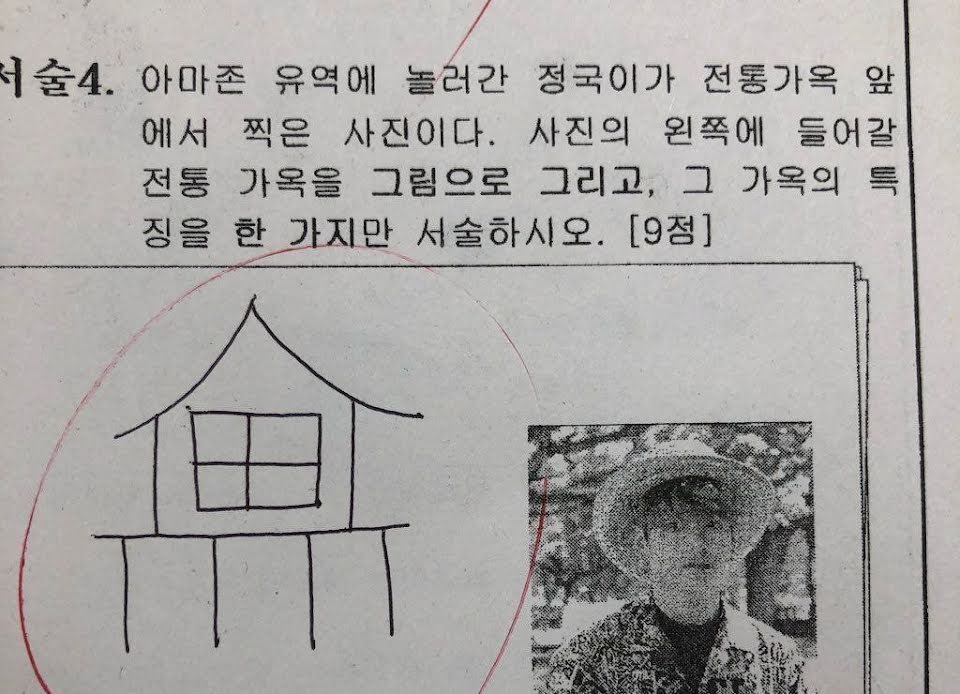 서술4. 아마존 유역에 놀러간 정국이가 전통가옥 앞
에서 찍은 사진이다. 사진의 왼쪽에 들어갈
전통 가옥을 그림으로 그리고, 그 가옥의 특
징을 한 가지만 서술하시오. [9점]